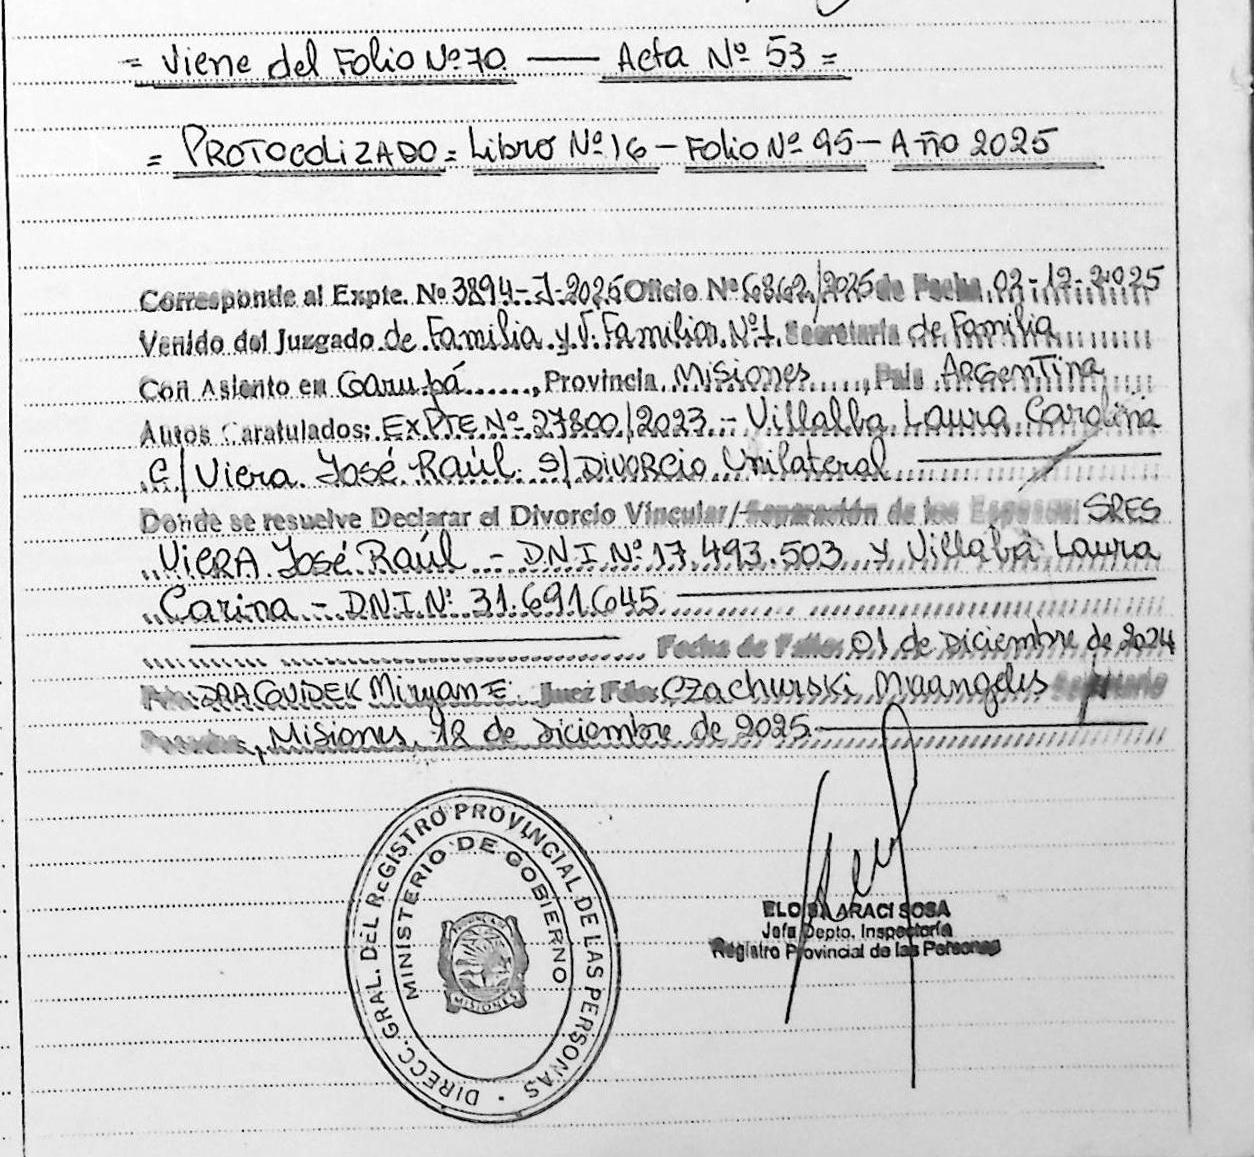 = Viene del Folio Nº 70 — Acta Nº 53 =
= PROTOCOLIZADO = Libro Nº 16 – Folio Nº 95 – Año 2025
Corresponde al Expte. Nº 3894-J-2025 Oficio Nº 6862/2025 de Fecha 02-12-2025
Venido del Juzgado de Familia y V. Familiar Nº 1 Secretaría de Familia
Con Asiento en Garupá, Provincia Misiones, País Argentina
Autos Caratulados: EXPTE Nº 27800/2023 - Villalba Laura Carolina
C/ Viera José Raúl S/ Divorcio Unilateral
Donde se resuelve Declarar el Divorcio Vincular/Separación de los Esposos: SRES
VIERA José Raúl - DNI Nº 17.493.503 y Villalba Laura
Carina - DNI Nº 31.691.645
Fecha de Fallo: 01 de Diciembre de 2024
Fdo: DRA GUIDEK Miryan E. Juez Fdo: Czachurski Maangeles Secretario
Posadas, Misiones, 18 de Diciembre de 2025
DIRECC. GRAL. DEL REGISTRO PROVINCIAL DE LAS PERSONAS
MINISTERIO DE GOBIERNO
MISIONES
ARACI SOSA
Jefa Depto. Inspectoría
Registro Provincial de las Personas